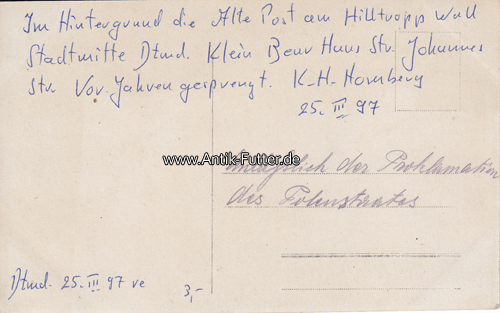 Im Hintergrund die Alte Post am Hilltropp Wall
Stadtmitte Dtmd. Klein Beur Haus Str. Johannes
Str. Vor Jahren gesprengt. K-H-Hornberg
25. III 97
www.Antik-Futter.de
anläßlich der Proklamation
des Polenstaates
Dtmd. 25. III 97 ve
3,-